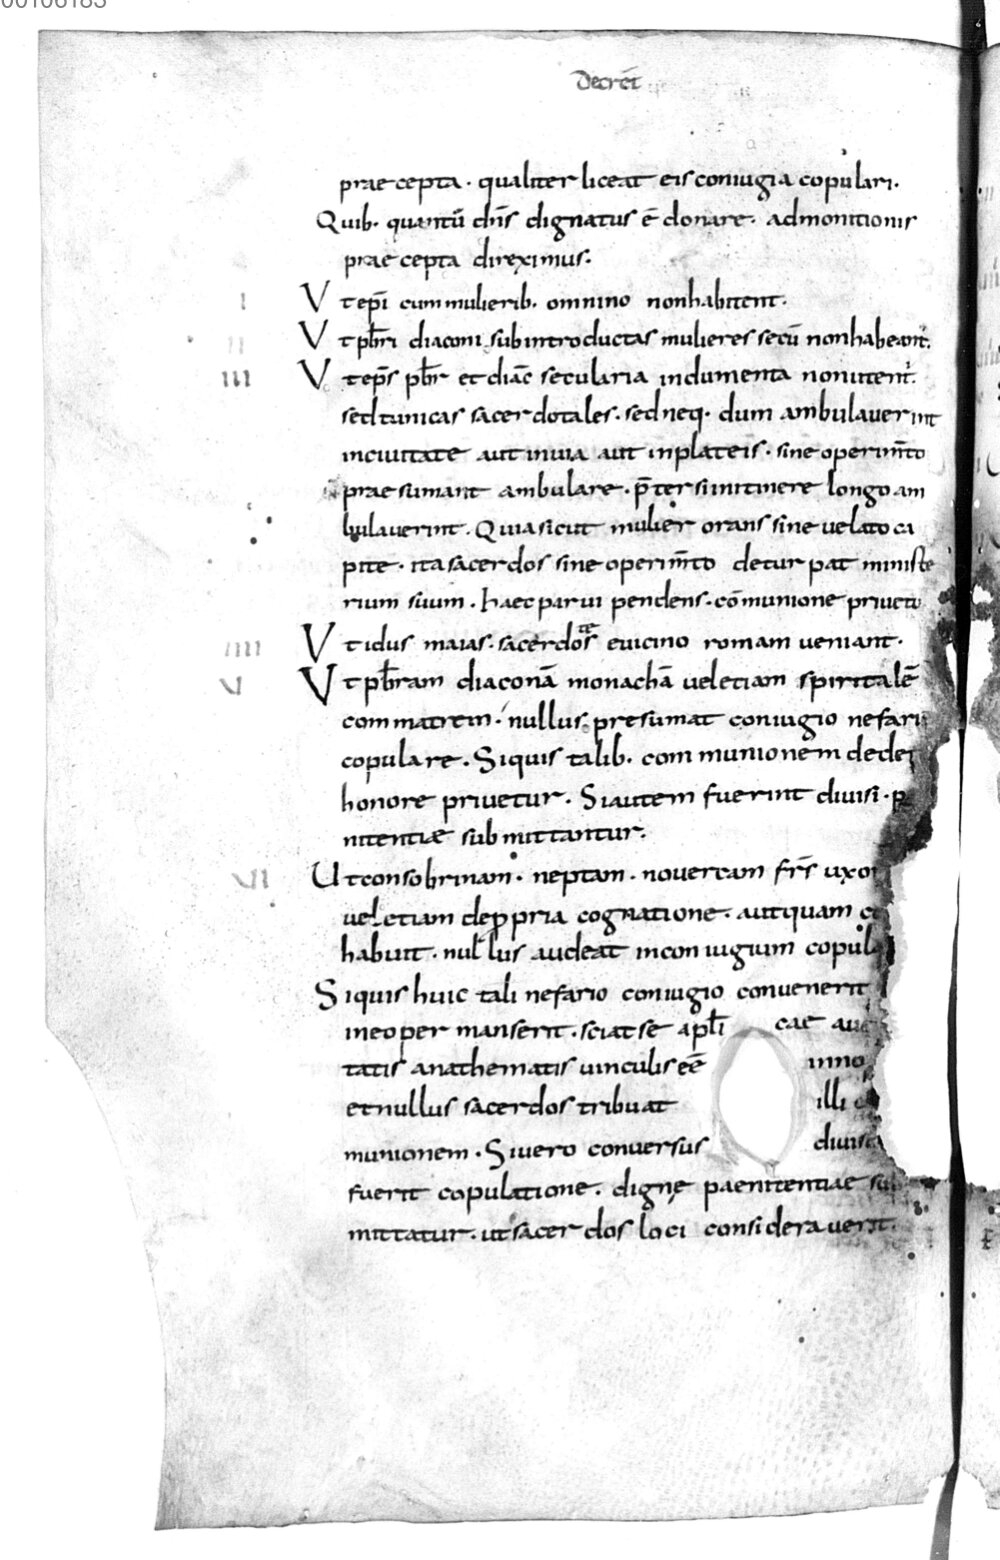 00106183
Decret̄
praecepta · qualiter liceat eis coniugia copulari.
Quib· quantū dn̄s dignatus ē donare · admonitionis
praecepta direximus.
I Ut ep̄i cum mulierib· omnino non habitent.
II Ut pb̄ri diaconi subintroductas mulieres secū non habeant.
III Ut ep̄s pb̄r et diac̄ secularia indumenta non utent̄.
sed tunicas sacerdotales · sed neq· dum ambulaverint
in civitate aut in via aut in plateis · sine operim̄to
praesumant ambulare · p̄ter si in itinere longo am
bulaverint. Quia sicut mulier orans sine velato ca
pite · ita sacerdos sine operim̄to deturpat ministe
rium suum · haec parvi pendens · cōmunione privetur
IIII Ut idus maias · sacerdotes e vicino romam veniant.
V Ut pb̄ram diaconā monachā vel etiam spiritalē
commatrem · nullus presumat coniugio nefari
copulare. Siquis talib· communionem deder
honore privetur. Si autem fuerint divisi ·
nitentiae submittantur.
VI Ut consobrinam · neptam · novercam fr̄s uxor
vel etiam de ꝓpria cognatione · aut quam
habuit · nullus audeat in coniugium copul
Siquis huic tali nefario coniugio convenerit
in eo permanserit · sciat se apl̄i cae auc
tatis anathematis vinculis eē inno
et nullus sacerdos tribuat illi
munionem · Si vero conversus divisa
fuerit copulatione · digne paenitentiae su
mittatur · ut sacerdos loci consideraverit.